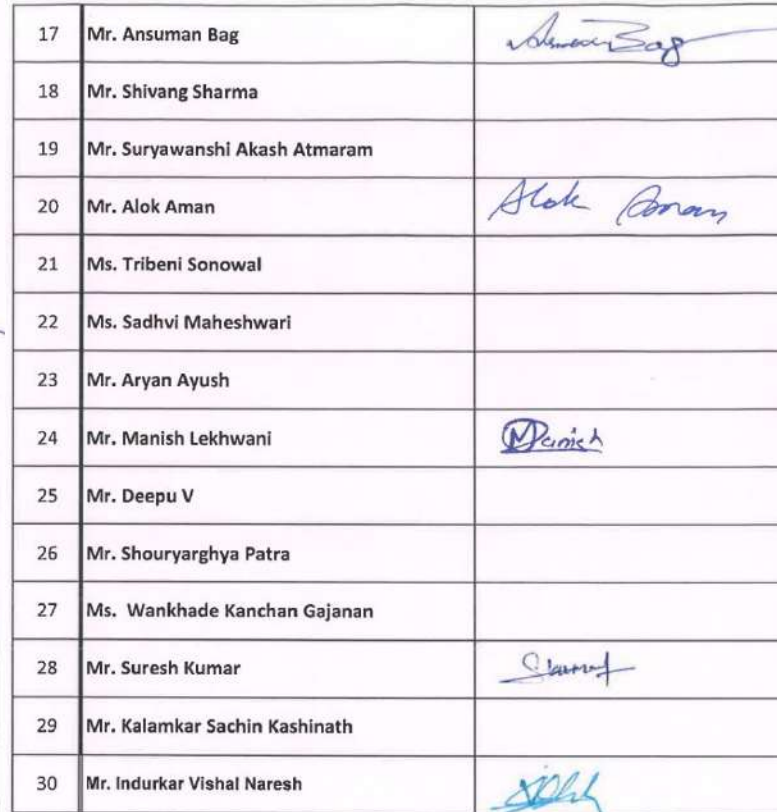 17 Mr. Ansuman Bag Ansuman Bag
18 Mr. Shivang Sharma
19 Mr. Suryawanshi Akash Atmaram
20 Mr. Alok Aman Alok Aman
21 Ms. Tribeni Sonowal
22 Ms. Sadhvi Maheshwari
23 Mr. Aryan Ayush
24 Mr. Manish Lekhwani Manish
25 Mr. Deepu V
26 Mr. Shouryarghya Patra
27 Ms. Wankhade Kanchan Gajanan
28 Mr. Suresh Kumar
29 Mr. Kalamkar Sachin Kashinath
30 Mr. Indurkar Vishal Naresh